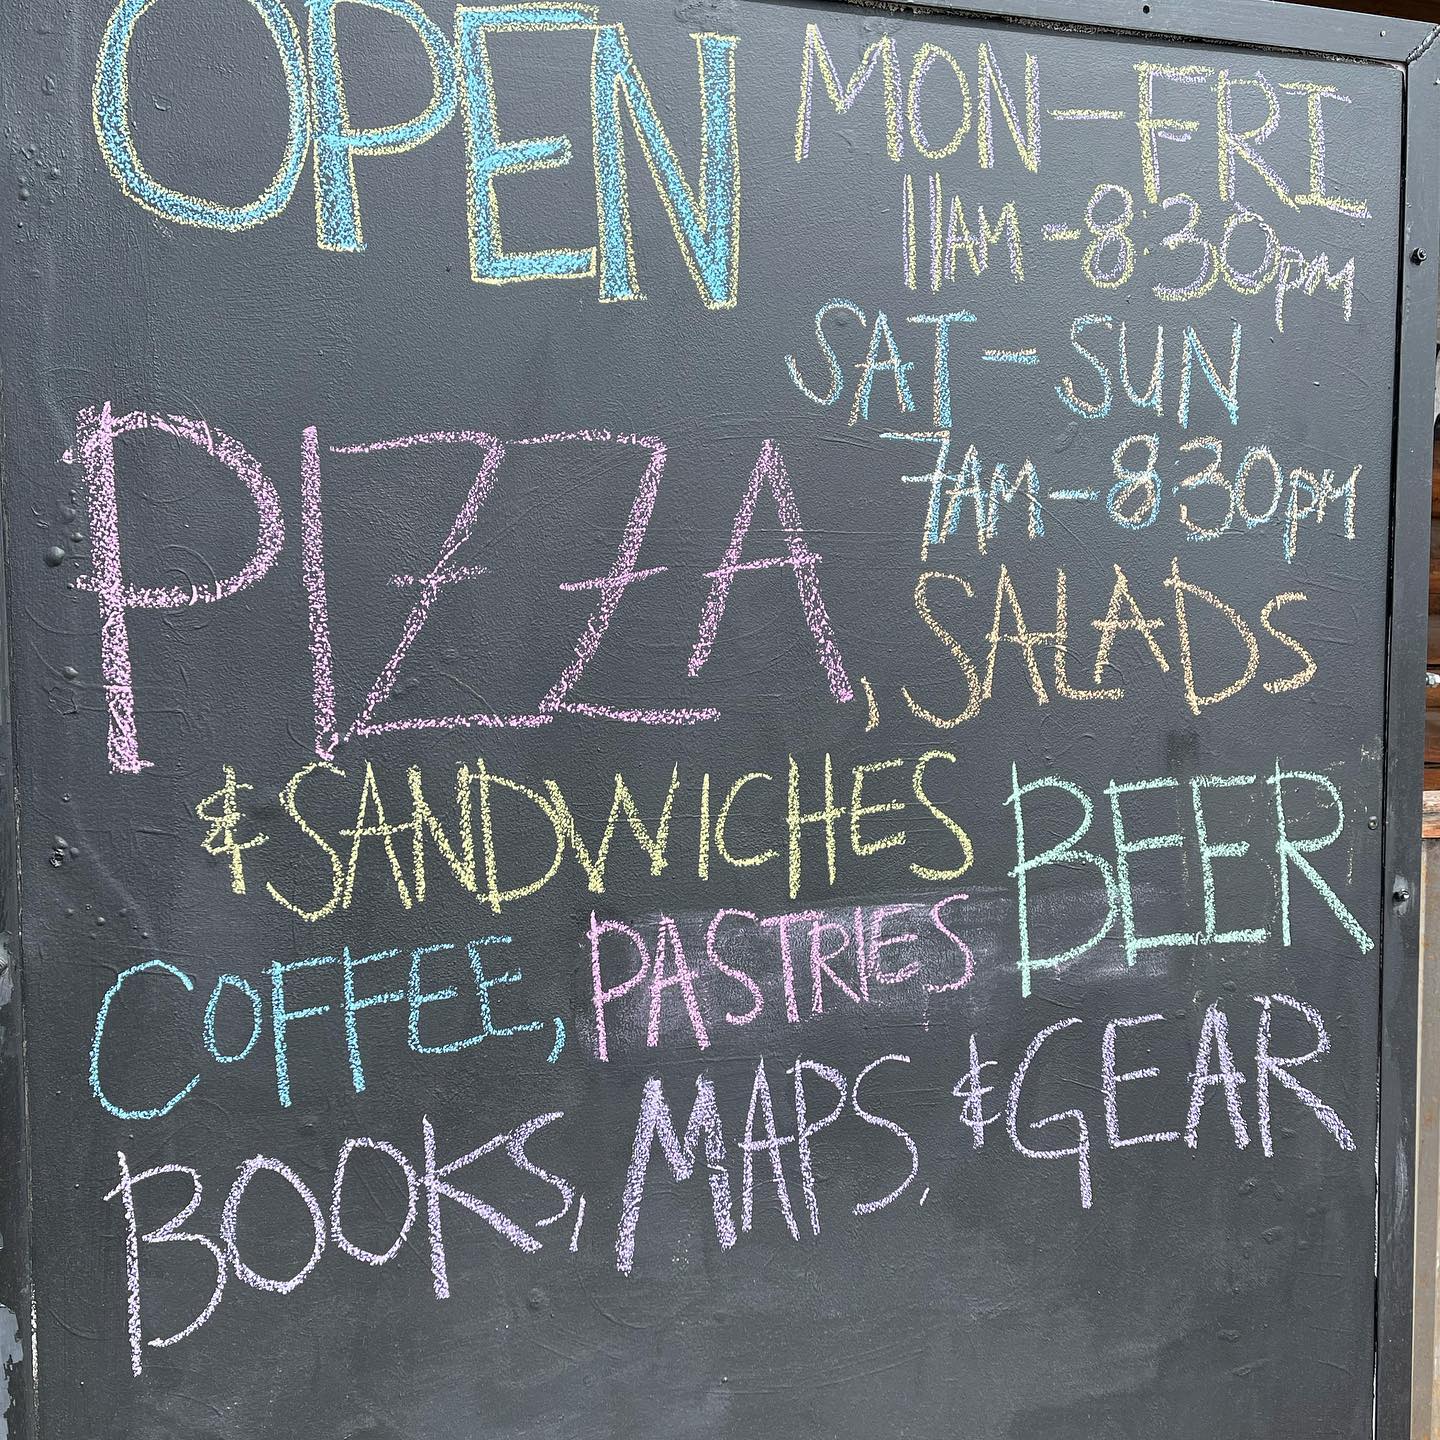 OPEN
MON-FRI
11AM-8:30PM
SAT-SUN
7AM-830PM
PIZZA, SALADS
& SANDWICHES BEER
COFFEE, PASTRIES
BOOKS, MAPS, & GEAR